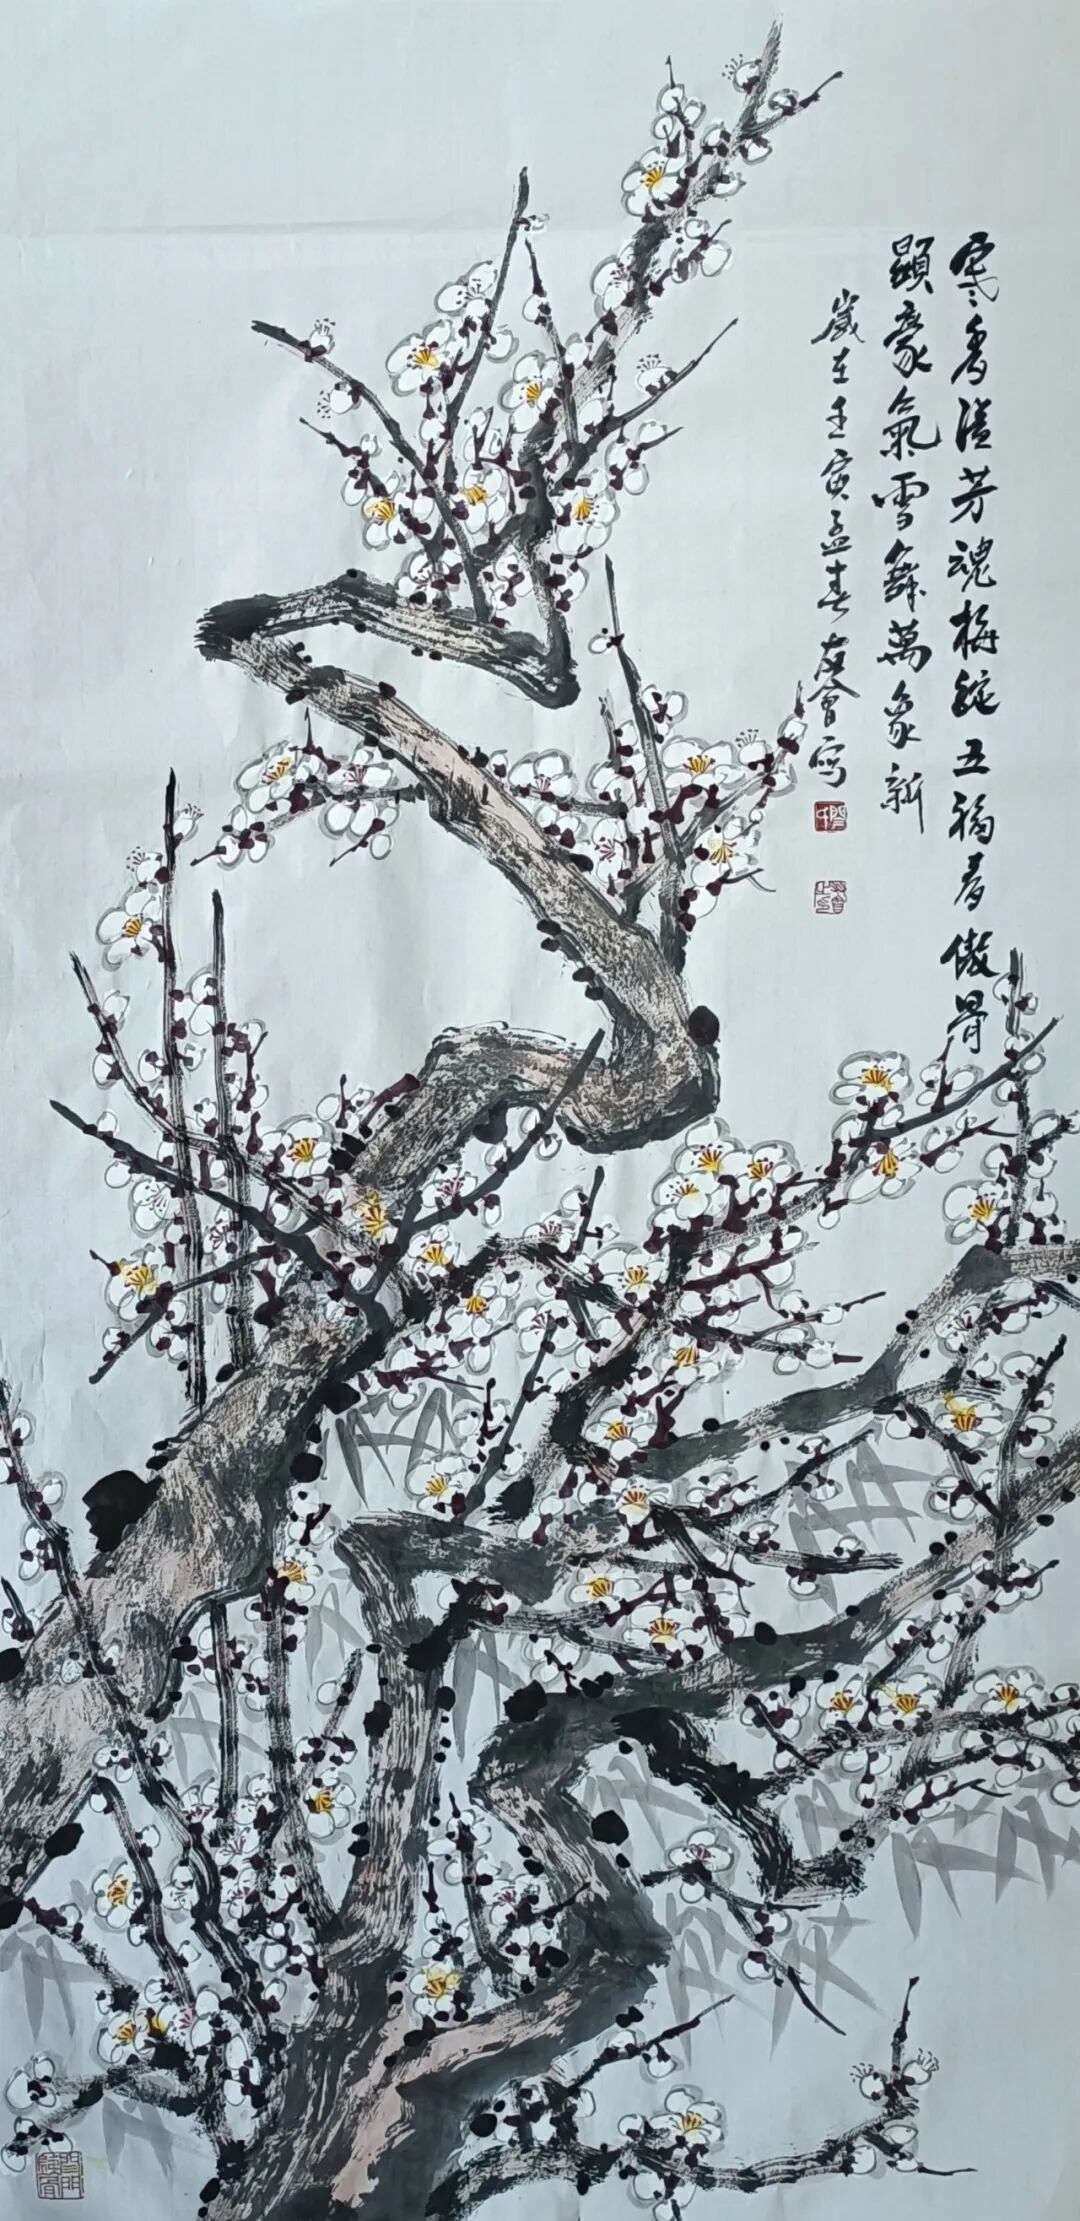 寒香溢芳魂梅綻五福春傲骨
顯豪氣雪舞萬象新
歲在壬寅孟春會寫